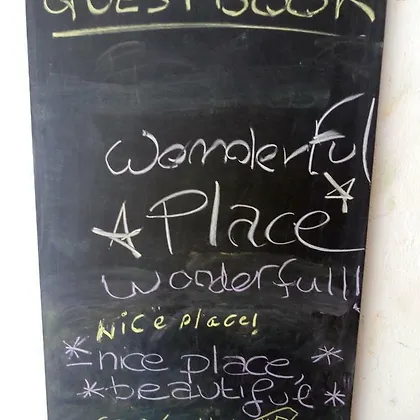 GUESTBOOK
Wonderful
Place
Wonderful!!
Nice place!
nice place,
beautiful